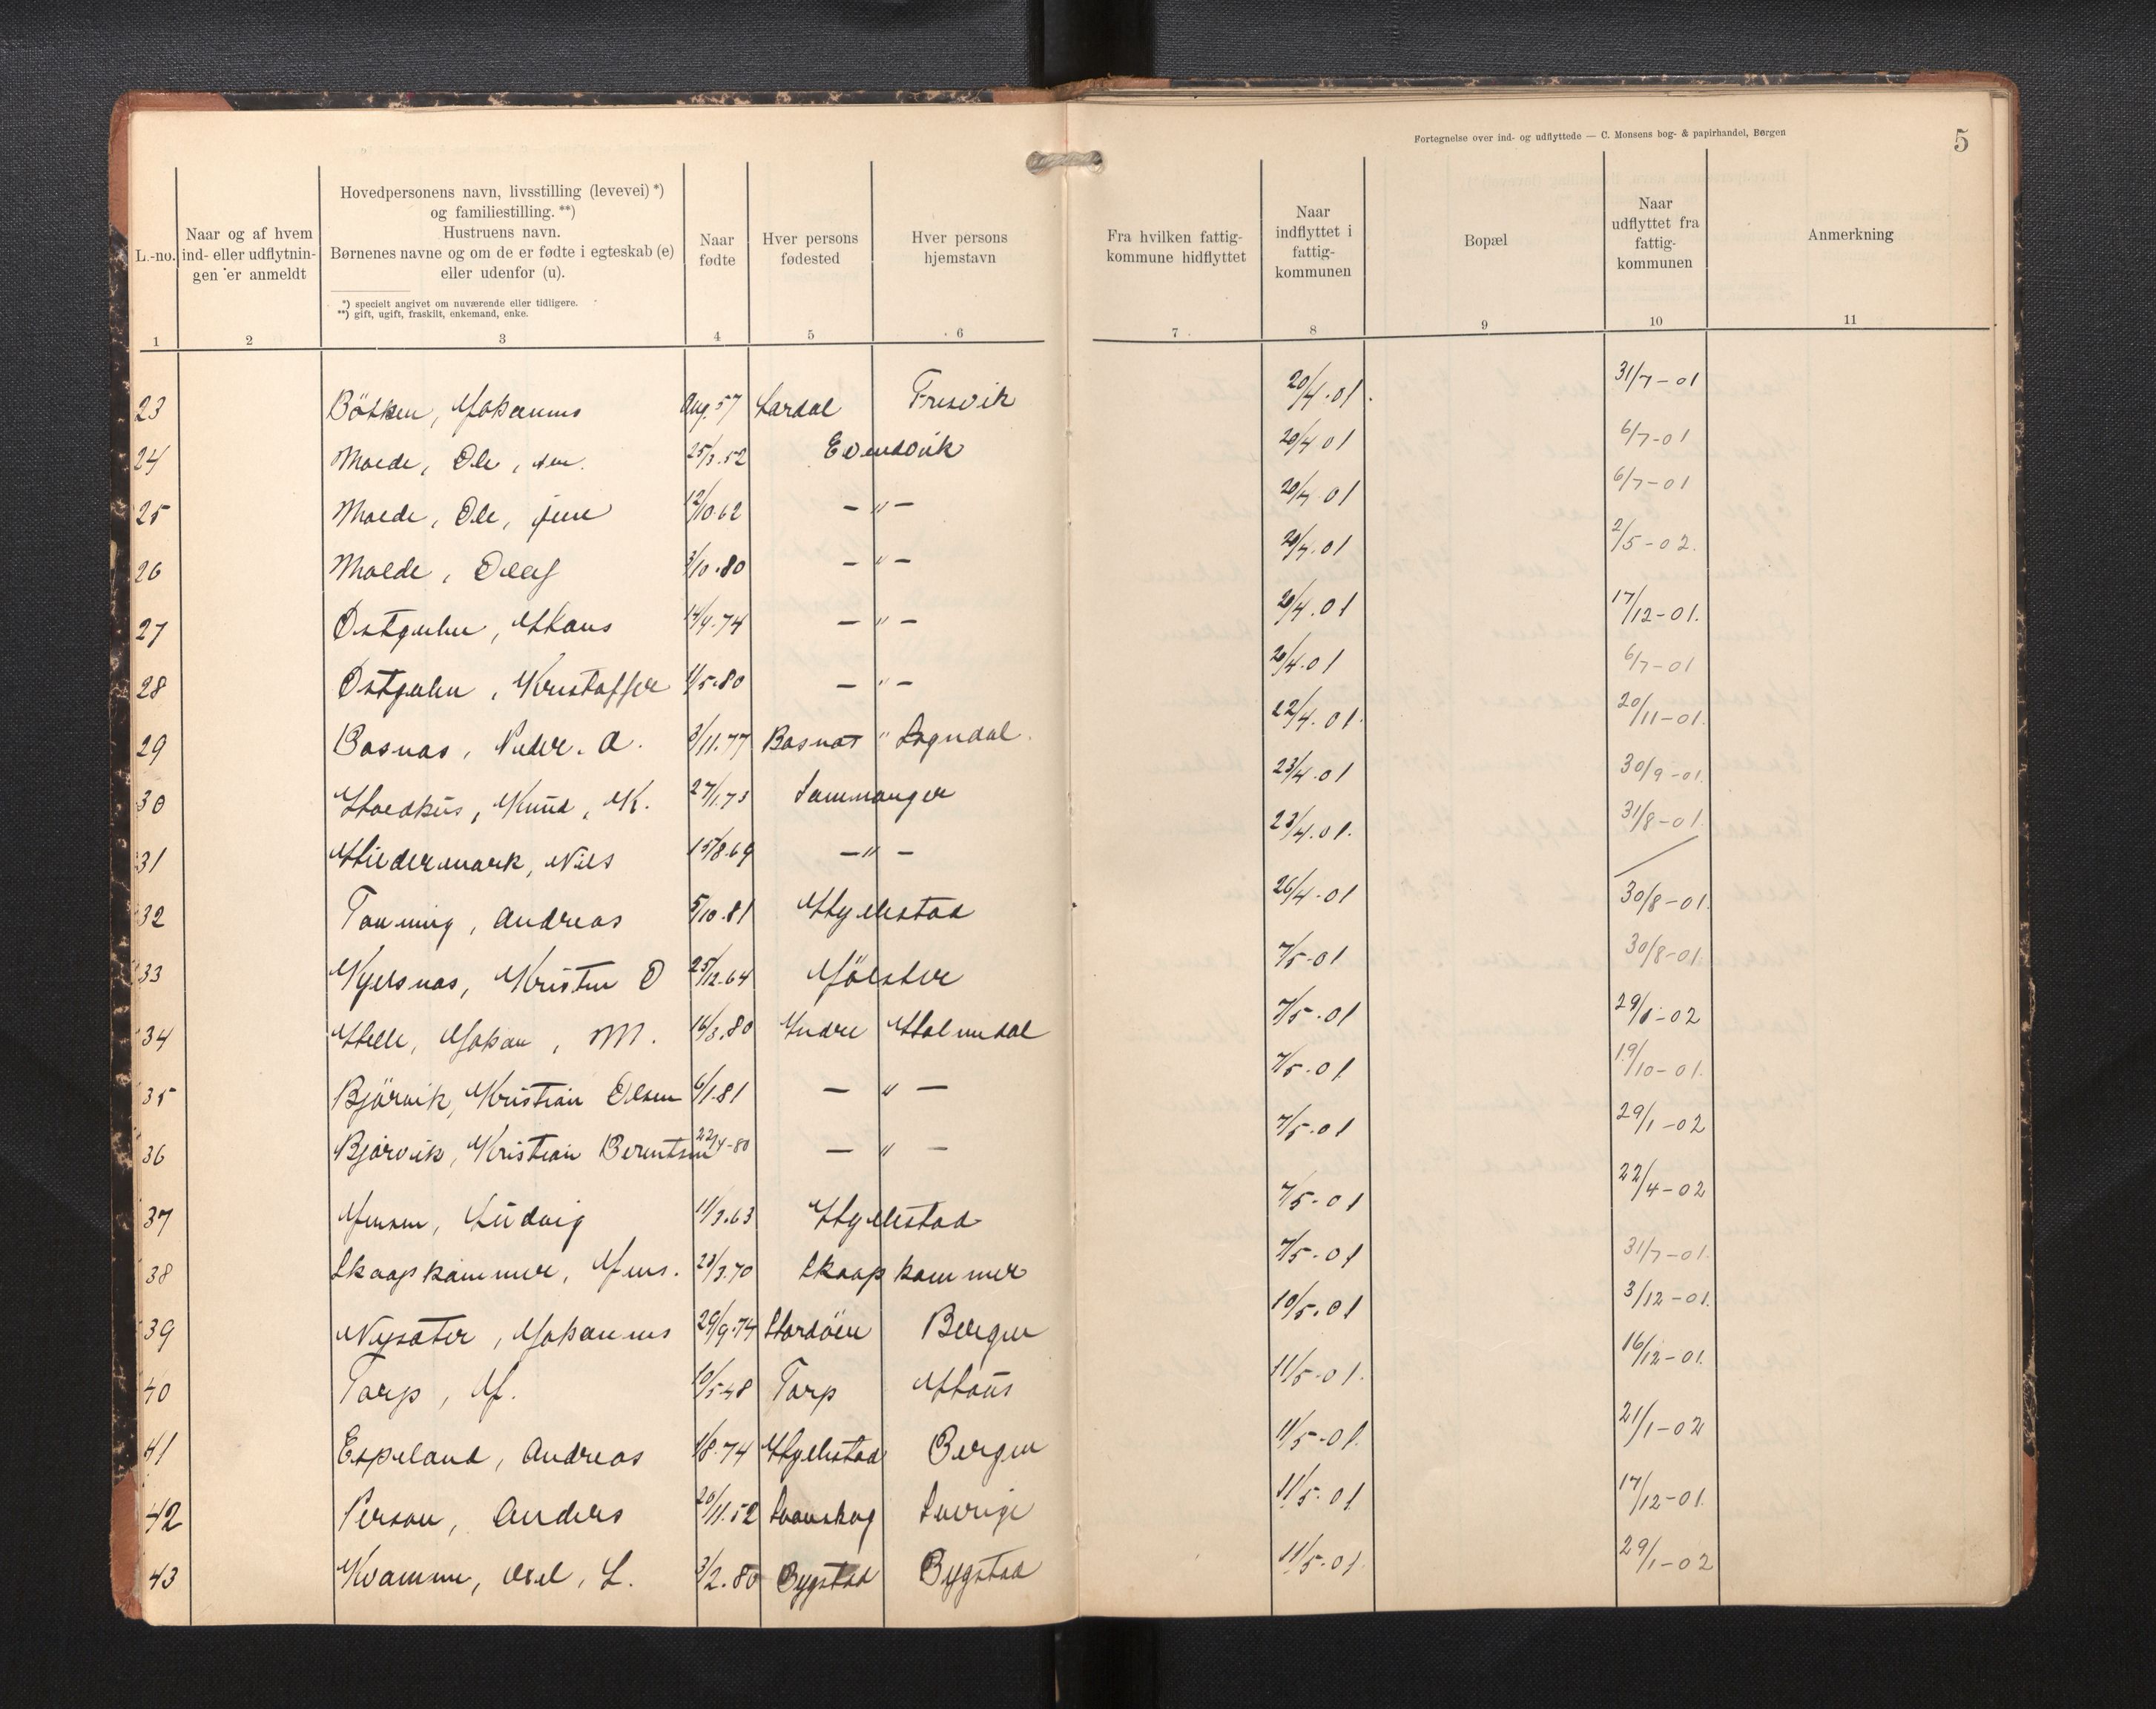 Fortegnelse over ind- og udflyttede — C. Monsens bog- & papirhandel, Bergen
5
L.-no.
Naar og af hvem
ind- eller udflytnin-
gen er anmeldt
Hovedpersonens navn, livsstilling (levevei) *)
og familiestilling. **)
Hustruens navn.
Børnenes navne og om de er fødte i egteskab (e)
eller udenfor (u).
*) specielt angivet om nuværende eller tidligere.
**) gift, ugift, fraskilt, enkemand, enke.
Naar
fødte
Hver persons
fødested
Hver persons
hjemstavn
Fra hvilken fattig-
kommune hidflyttet
Naar
indflyttet i
fattig-
kommunen
Bopæl
Naar
udflyttet fra
fattig-
kommunen
Anmerkning
1 2 3 4 5 6 7 8 9 10 11
23 Johannes Aug. 57 Lardal Fresvik 20/4.01. 31/7-01
24 Molde, Ole, sen. 25/3.52 Evendvik 20/4 01 6/7-01
25 Molde, Ole, jun 12/10.62 — " — 20/4.01 6/7-01
26 Molde, Olaf 3/10.80 — " — 20/4.01 2/5-02.
27 Østgulen, Hans 14/4.74 — " — 20/4.01 17/12-01.
28 Østgulen, Kristoffer 1/5.80 — " — 20/4.01 6/7-01
29 Bosnas, Peder. A. 3/11.77 Bosnas " Sogndal. 22/4.01. 20/11-01.
30 Knud, K. 27/1.73 Sammanger 23/4.01 30/9-01.
31 Nils 15/8.69 — " — 23/4.01. 31/8-01.
32 Andreas 5/10.81 Hyllestad 26/4-01 30/8-01.
33 Kristen O 25/12.64 Jölster 7/5-01 30/8-01.
34 Helle, Johan, M. 16/3.80 Indre Holmedal 7/5-01 29/1-02
35 Bjørvik, Kristian Olsen 6/1.81 — " — 7/5-01 19/10-01.
36 Bjørvik, Kristian Berentsen 22/4-80 — " — 7/5.01 29/1-02
37 Jensen, Ludvig 11/3.63 Hyllestad 7/5-01 22/4-02
38 Skaapkammer, Jens. 23/3.70 Skaapkammer 7/5-01 31/7-01.
39 Nysater, Johannes 29/9.74 Stordöen Bergen 10/5.01 3/12-01.
40 Torp, J. 10/5.48 Torp Haus 11/5-01. 16/12-01.
41 Espeland, Andreas 1/8.74 Hyllestad Bergen 11/5-01. 21/1-02
42 Person, Anders 20/11.52 Svanskog Sverige 11/5.01 17/12-01.
43 Kvamme, Axel, L. 3/2.80 Bygstad Bygstad 11/5-01. 29/1-02